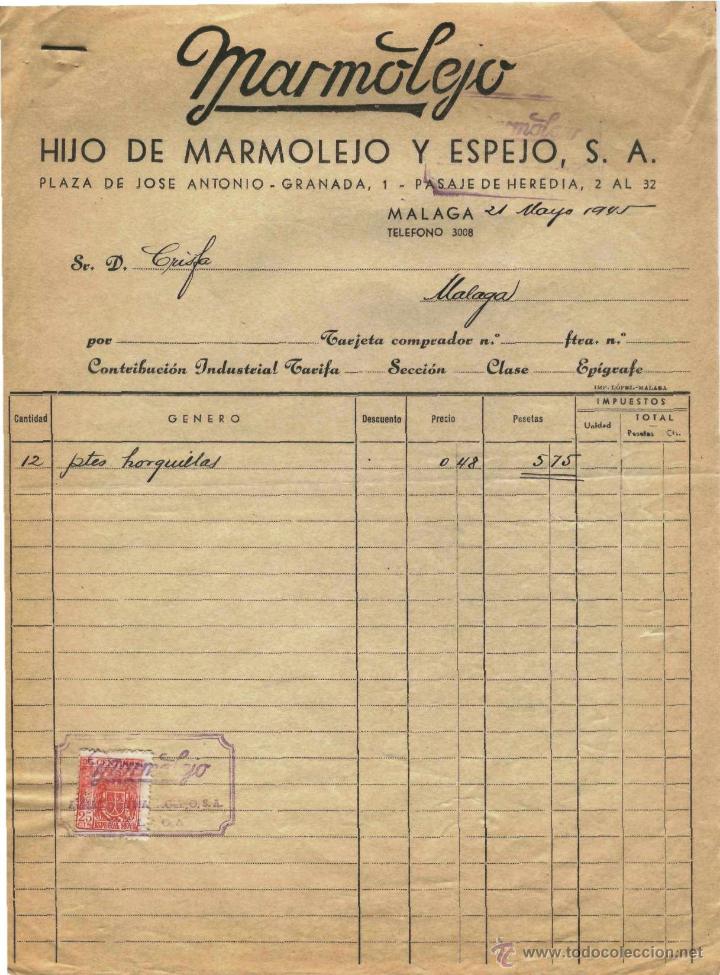 Marmolejo
HIJO DE MARMOLEJO Y ESPEJO, S. A.
PLAZA DE JOSE ANTONIO - GRANADA, 1 - PASAJE DE HEREDIA, 2 AL 32
MALAGA 21 Mayo 1945
TELEFONO 3008
Sr. D. Crisfa
Malaga
por Tarjeta comprador n.º ftra. n.º
Contribución Industrial Tarifa Sección Clase Epígrafe
IMP. LÓPEZ.-MALAGA
Cantidad GENERO Descuento Precio Pesetas IMPUESTOS
Unidad TOTAL
Pesetas Cts.
12 ptes horquillas 0 48 5 75
Marmolejo
S. A.
25
ESPECIAL MOVIL
© www.todocoleccion.net